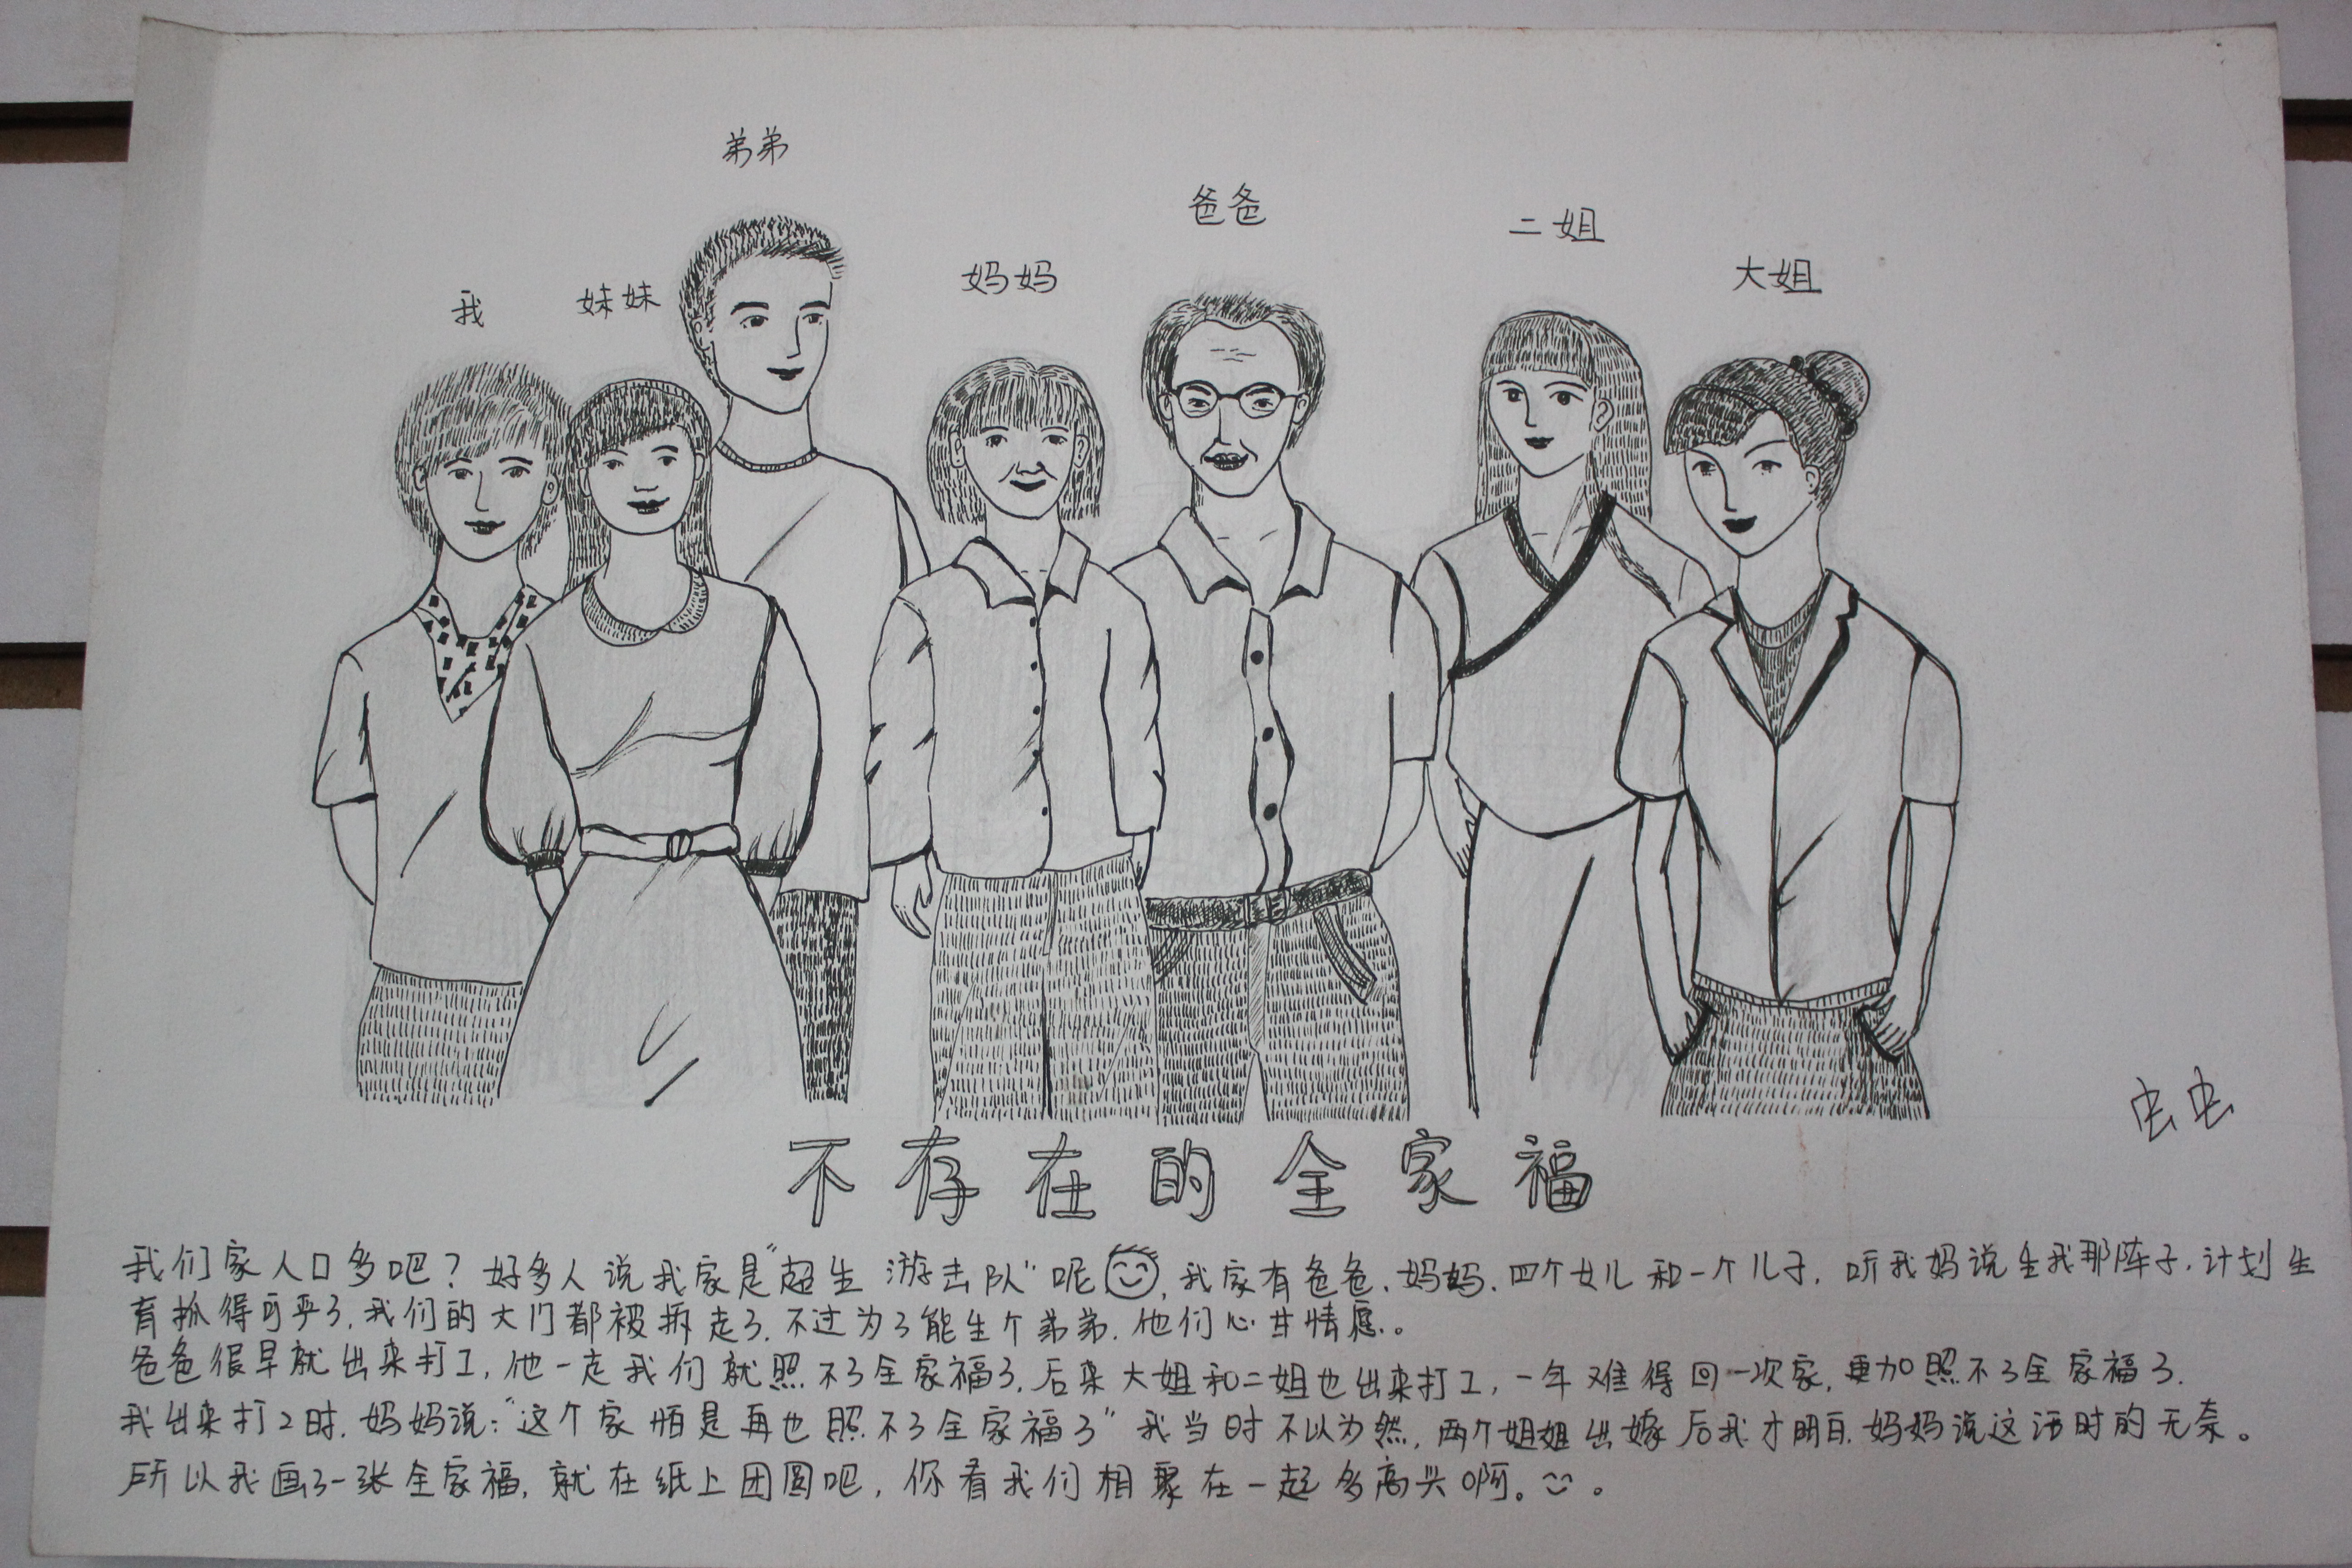 弟弟
爸爸
二姐
大姐
妈妈
妹妹
我
虫虫
不存在的全家福
我们家人口多吧？好多人说我家是"超生游击队"呢，我家有爸爸、妈妈、四个女儿和一个儿子，听我妈说生我那阵子，计划生
育抓得可严了，我们的大门都被拆走了，不过为了能生个弟弟，他们心甘情愿。
爸爸很早就出来打工，他一走我们就照不了全家福了，后来大姐和二姐也出来打工，一年难得回一次家，更加照不了全家福了．
我出来打工时，妈妈说："这个家怕是再也照不了全家福了"我当时不以为然，两个姐姐出嫁后我才明白妈妈说这话时的无奈。
所以我画了一张全家福，就在纸上团圆吧，你看我们相聚在一起多高兴啊。